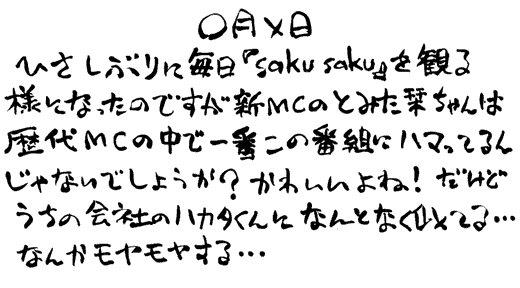 〇月×日
ひさしぶりに毎日『saku saku』を観る
様になったのですが新MCのとみた栞ちゃんは
歴代MCの中で一番この番組にハマってるん
じゃないでしょうか？かわいいよね！だけど
うちの会社のハカタくんになんとなく似てる…
なんかモヤモヤする…